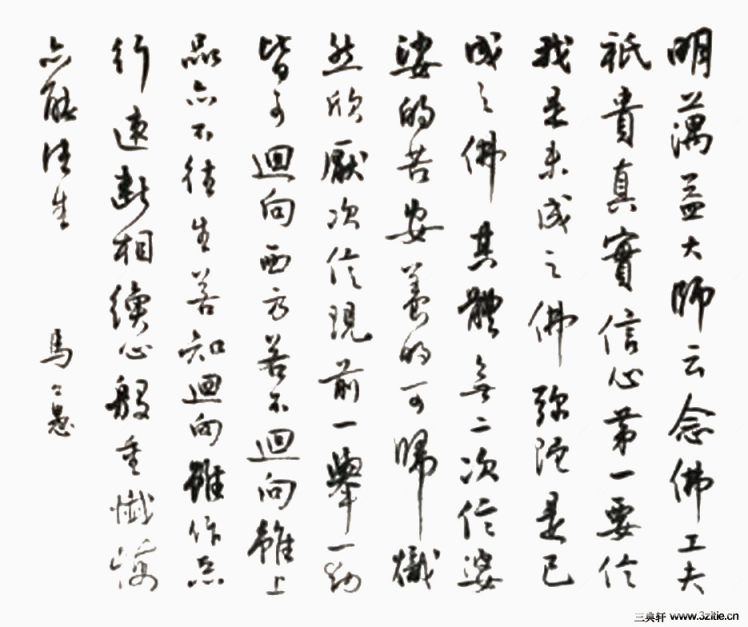 明蕅益大師云念佛工夫
祇貴真實信心第一要信
我是未成之佛弥陀是已
成之佛其體無二次信娑
婆的苦安養的可歸熾
然欣厭次信現前一舉一動
皆可迴向西方若不迴向雖上
品亦不往生若知迴向雖作惡
行速斷相續心殷重懺悔
亦能往生
馬公愚
三典轩 www.3zitie.cn